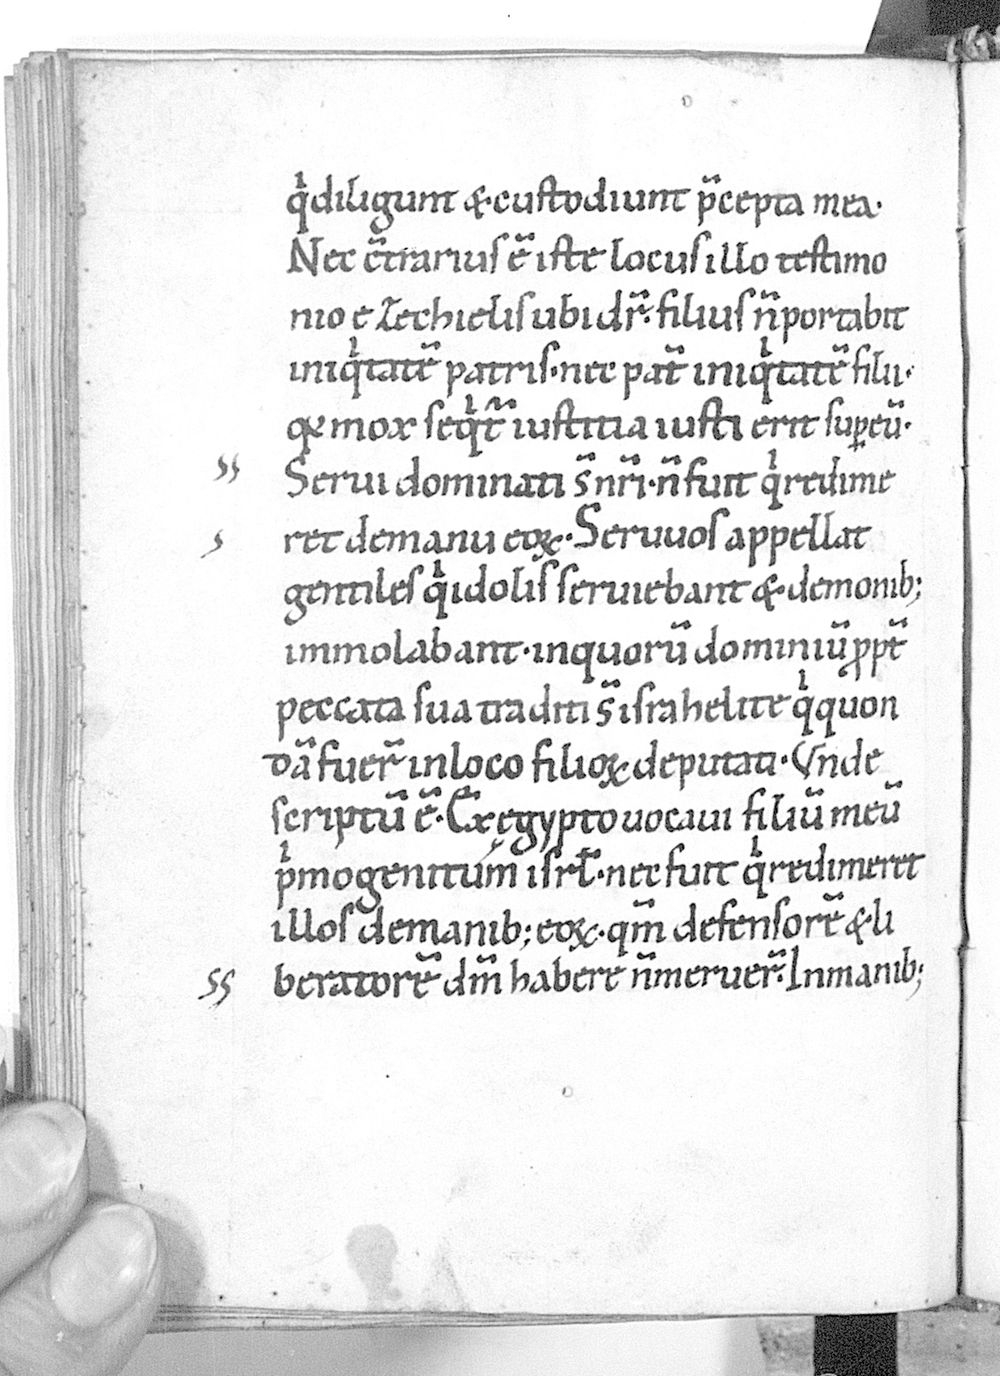 qͥ diligunt &· custodiunt p̄cepta mea·
Nec c̄trarius ē iste locus illo testimo
nio eZechielis ubi dr̄· filius n̄ portabit
iniqͥtatē patris· nec pat̄ iniqͥtatē filii·
qꝛ mox seqͥt̄ iustitia iusti erit suꝑ eū·
Serui dominati s̄ nr̄i· n̄ fuit qͥ redime
ret de manu eoꝝ· Seruuos appellat
gentiles qͥ idolis seruiebant &· demonib;
immolabant· in quorū dominiū ꝓpt̄
peccata sua traditi s̄ israhelite qͥ quon
dā fuer̄ in loco filioꝝ deputati· Vnde
scriptū ē· Ex̄ ęgypto uocaui filiū meū
pͥmogenitum̄ isrł· nec fuit qͥ redimeret
illos de manib; eoꝝ· qm̄ defensorē & li
beratorē dm̄ habere n̄ meruer̄· In manib;